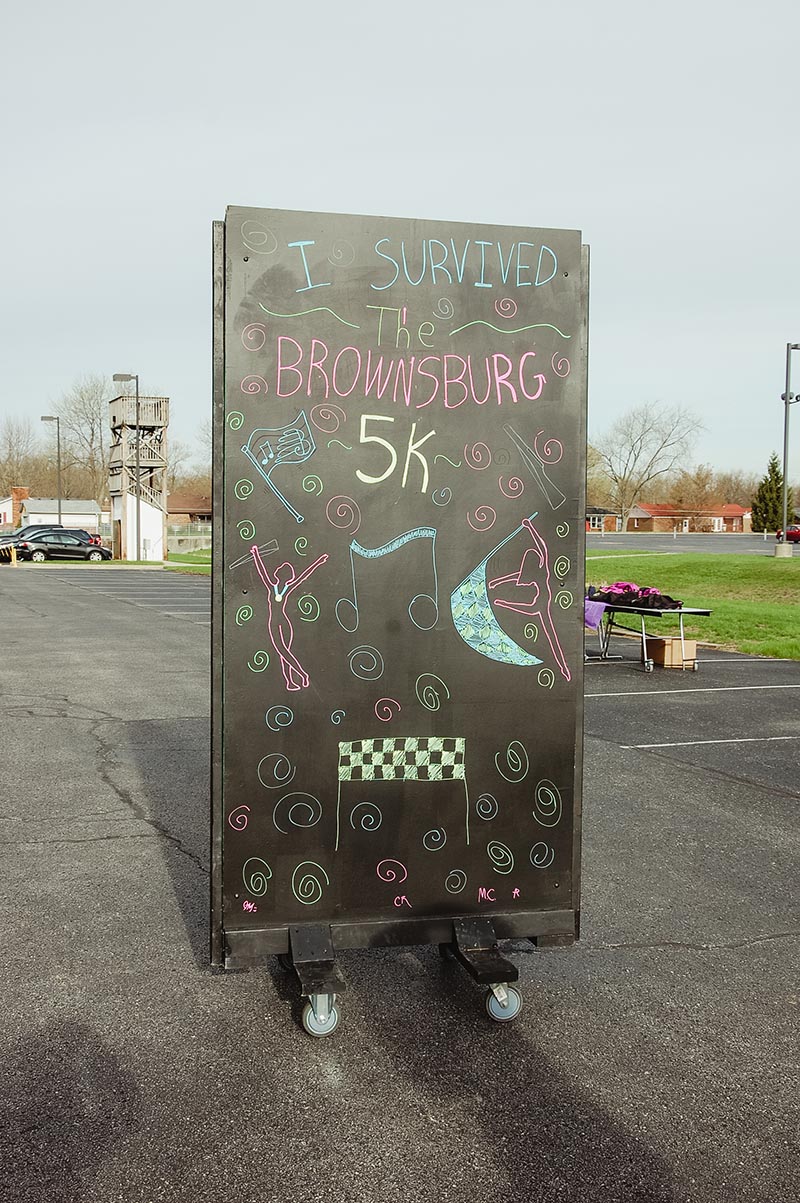 I SURVIVED
The
BROWNSBURG
5K
CR
MC